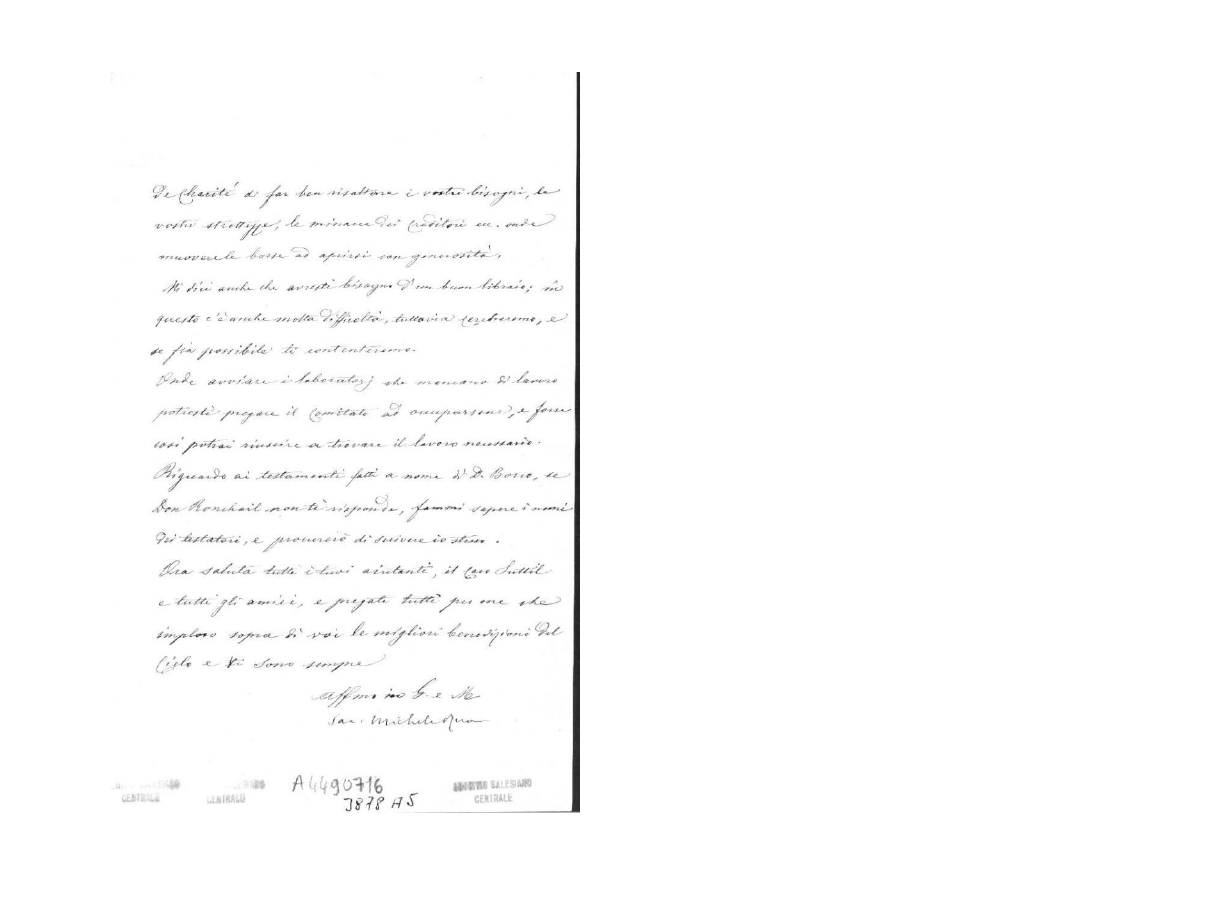 De Charité di far ben risaltare i vostri bisogni, le
vostre strettezze, le minacce dei creditori ecc. onde
muovere le borse ad aprirsi con generosità.
Mi dici anche che avresti bisogno d'un buon libraio; in
questo c'è anche molta difficoltà, tuttavia cercheremo, e
se fia possibile ti contenteremo.
Onde avviare i laboratorj che mancano di lavoro
potresti pregare il Comitato ad occuparsene, e forse
così potrai riuscire a trovare il lavoro necessario.
Riguardo ai testamenti fatti a nome di D. Bosco, se
Don Ronchail non ti risponde, fammi sapere i nomi
dei testatori, e procurerò di scrivere io stesso.
Ora saluta tutti i tuoi aiutanti, il caro
e tutti gli amici, e pregate tutti per me che
imploro sopra di voi le migliori benedizioni del
Cielo e ti sono sempre
Affmo in G. e M.
Sac. Michele Rua
CENTRALE CENTRALE A4490716 ARCHIVIO SALESIANO
3878 A5 CENTRALE